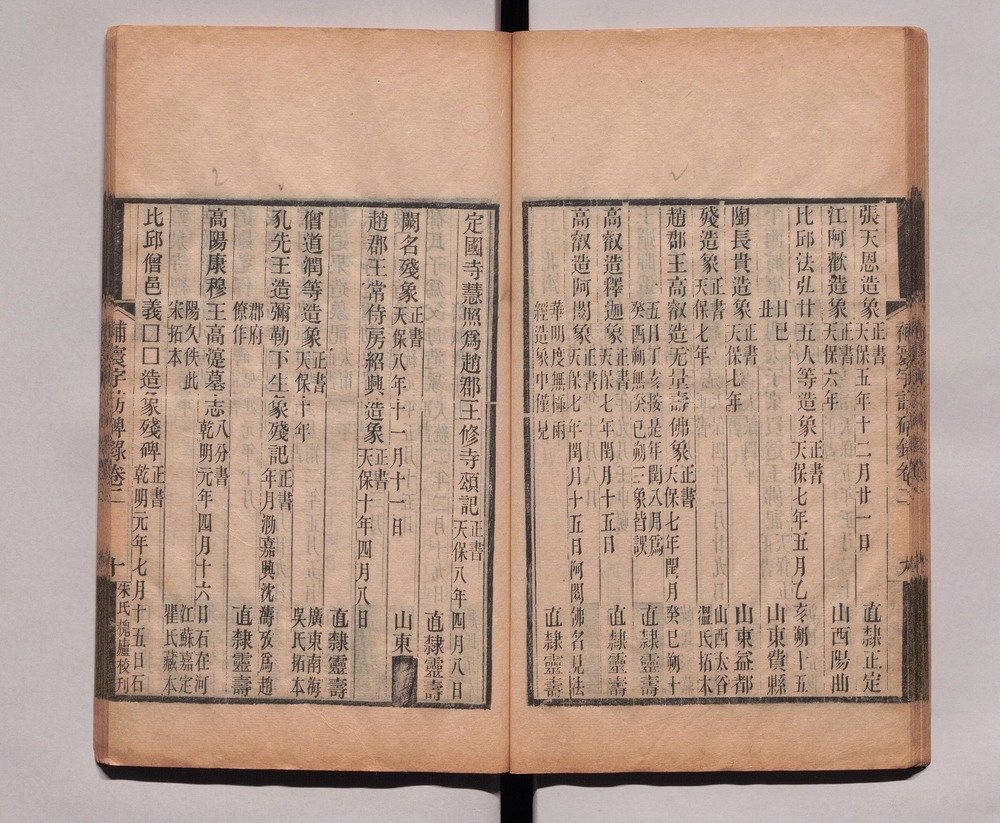 張天恩造象 正書 天保五年十二月廿一日 直隸正定
江阿歡造象 正書 天保六年 山西陽曲
比邱法弘廿五人等造象 正書 天保七年五月乙亥朔十五
日巳丑 山東費縣
陶長貴造象 正書 天保七年 山東益都
殘造象 正書 天保七年 山西太谷溫氏拓本
趙郡王高叡造无量壽佛象 正書 天保七年閏月癸巳朔十
五日丁亥按是年閏八月爲癸酉朔無癸巳朔三象皆誤 直隸靈壽
高叡造釋迦象 正書 天保七年閏月十五日 直隸靈壽
高叡造阿閦象 正書 天保七年閏月十五日阿閦佛名見法
華明度無極兩經造象中僅見 直隸靈壽
補寰宇訪碑錄卷二
九
定國寺慧照爲趙郡王修寺頌記 正書 天保八年四月八日
直隸靈壽
闕名殘象 正書 天保八年十一月十一日 山東
趙郡王常侍房紹興造象 正書 天保十年四月八日
直隸靈壽
僧道潤等造象 正書 天保十年 廣東南海吳氏拓本
孔先王造彌勒下生象殘記 正書 年月泐嘉興沈濤攷爲趙
郡府僚作 直隸靈壽
高陽康穆王高湜墓志 八分書 乾明元年四月十六日石在河
陽久佚此宋拓本 江蘇嘉定瞿氏藏本
比邱僧邑義囗囗造象殘碑 正書 乾明元年七月十五日石
補寰宇訪碑錄卷二
十
朱氏槐廬校刊